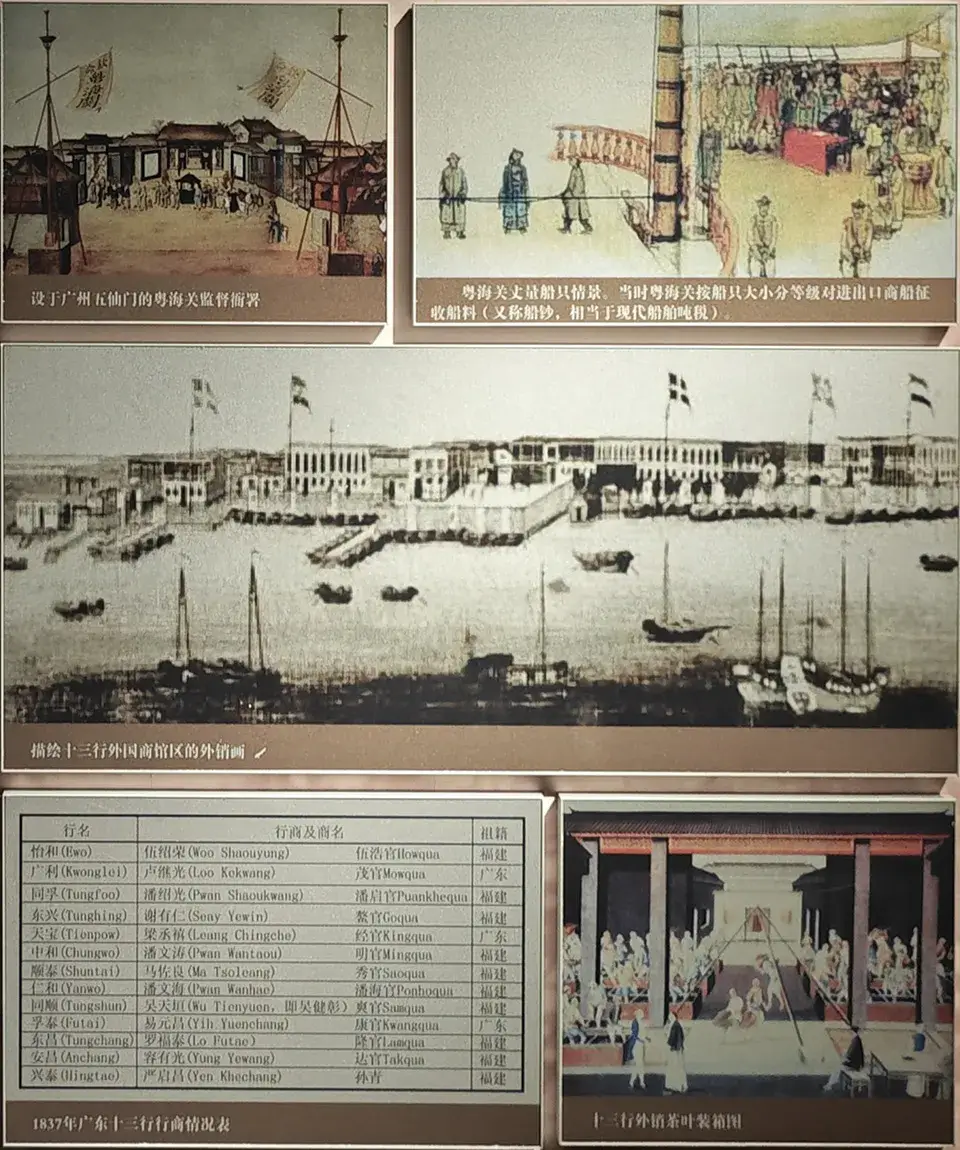 设于广州五仙门的粤海关监督衙署
粤海关丈量船只情景。当时粤海关按船只大小分等级对进出口商船征
收船料(又称船钞,相当于现代船舶吨税)。
描绘十三行外国商馆区的外销画
行名 行商及商名 祖籍
怡和(Ewo) 伍绍荣(Woo Shaouyung) 伍浩官Howqua 福建
广利(Kwonglei) 卢继光(Loo Kekwang) 茂官Mowqua 广东
同孚(Tungfoo) 潘绍光(Pwan Shaoukwang) 潘启官Puankhequa 福建
东兴(Tunghing) 谢有仁(Seay Yewin) 鳌官Goqua 福建
天宝(Tienpow) 梁承禧(Leang Chingche) 经官Kingqua 广东
中和(Chungwo) 潘文涛(Pwan Wantaou) 明官Mingqua 福建
顺泰(Shuntai) 马佐良(Ma Tsoleang) 秀官Saoqua 福建
仁和(Yanwo) 潘文海(Pwan Wanhao) 潘海官Ponhoqua 福建
同顺(Tungshun) 吴天垣(Wu Tienyuen,即吴健彰) 爽官Samqua 福建
孚泰(Futai) 易元昌(Yih Yuenchang) 康官Kwangqua 广东
东昌(Tungchang) 罗福泰(Lo Futae) 隆官Lamqua 福建
安昌(Anchang) 容有光(Yung Yewang) 达官Takqua 福建
兴泰(Hingtae) 严启昌(Yen Khechang) 孙青 福建
1837年广东十三行行商情况表
十三行外销茶叶装箱图